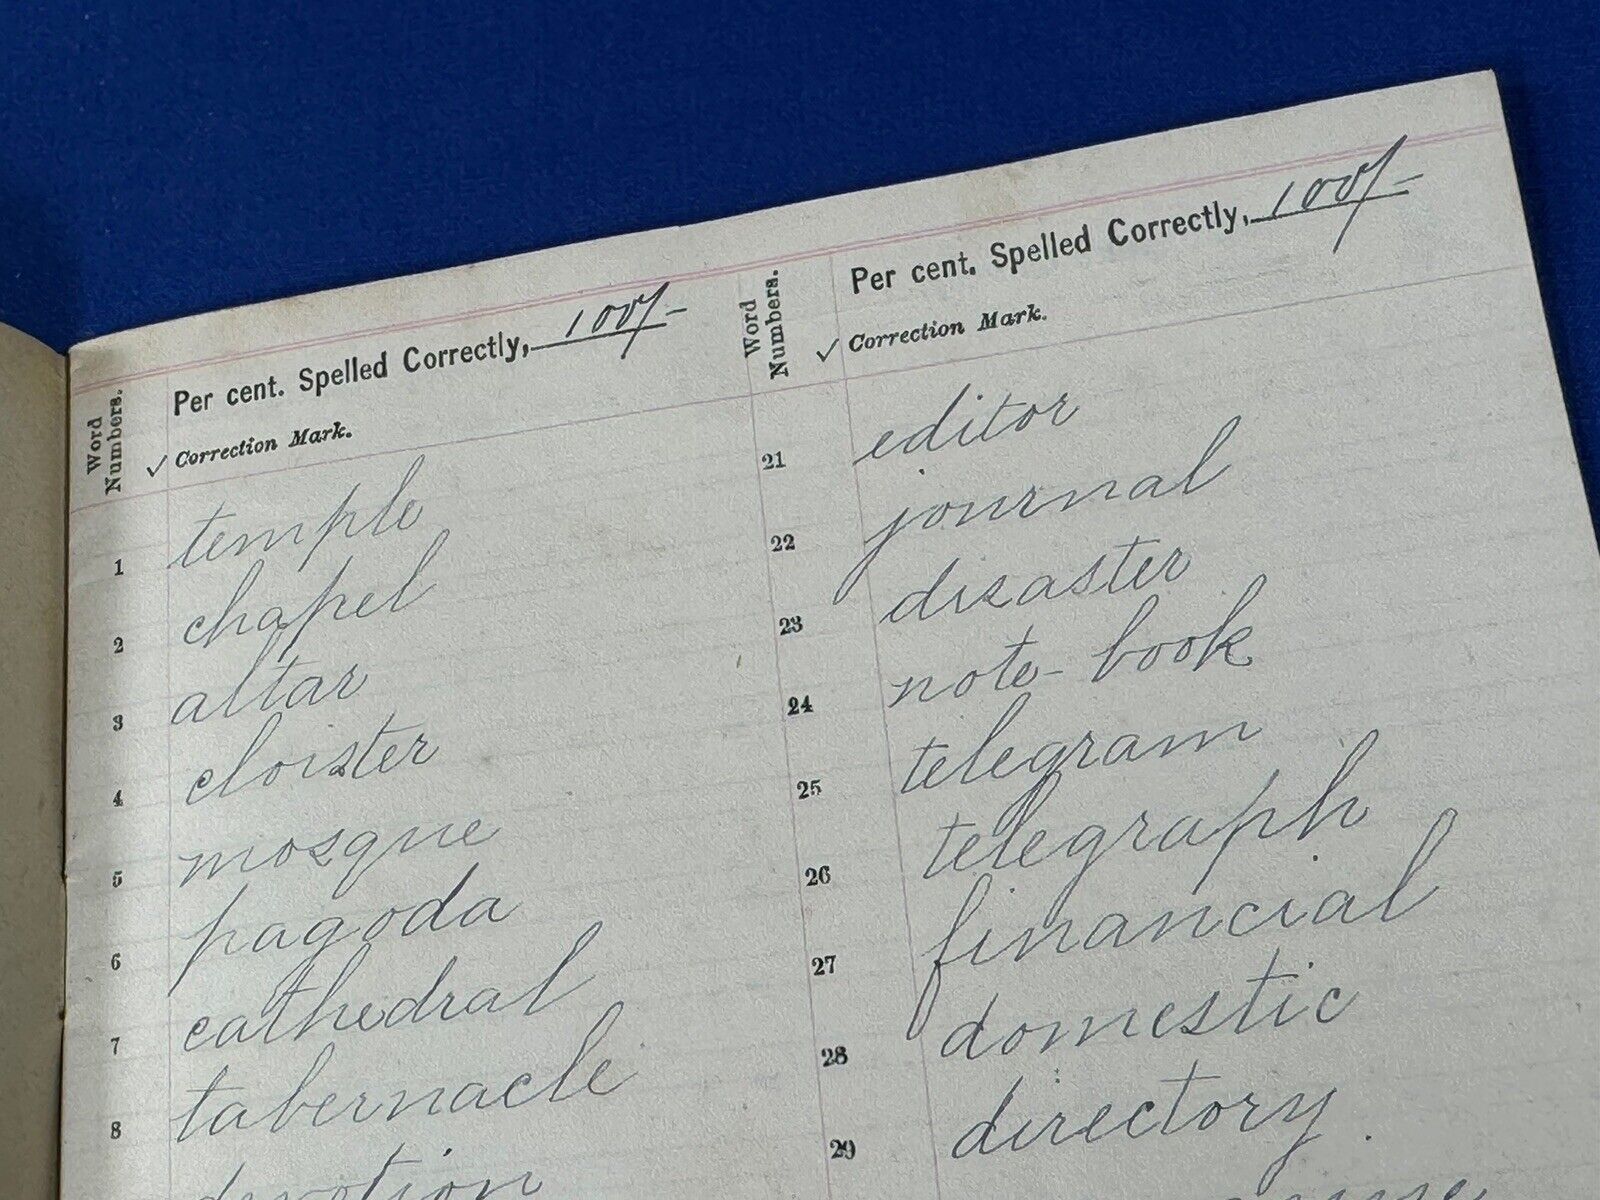 Word Numbers.
Per cent. Spelled Correctly, 100/-
✓ Correction Mark.
1 temple
2 chapel
3 altar
4 cloister
5 mosque
6 pagoda
7 cathedral
8 tabernacle
devotion
Word Numbers.
Per cent. Spelled Correctly, 100/-
✓ Correction Mark.
21 editor
22 journal
23 disaster
24 note-book
25 telegram
26 telegraph
27 financial
28 domestic
29 directory